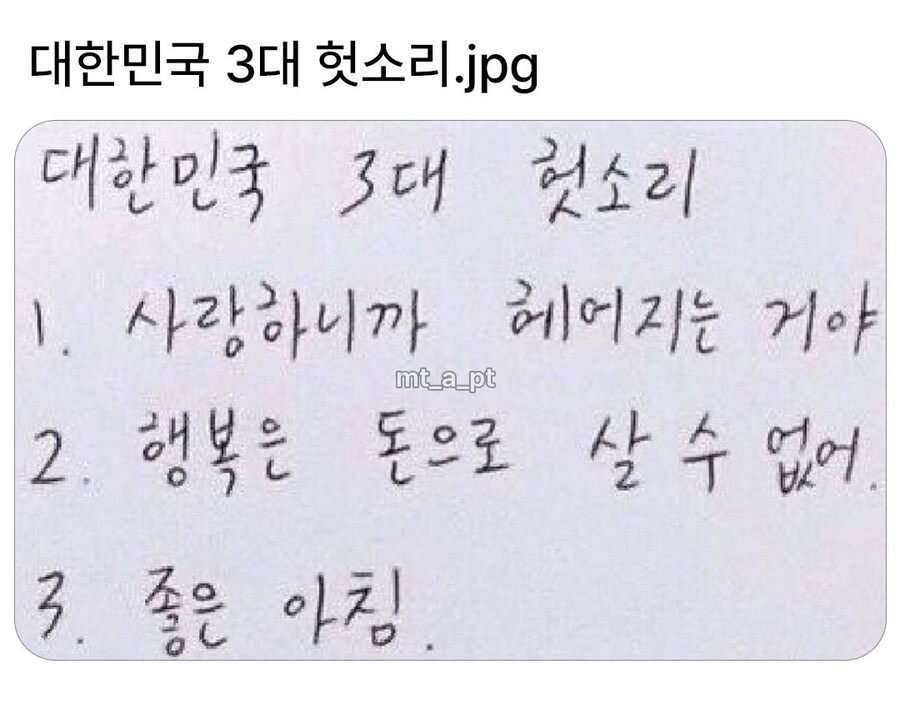 대한민국 3대 헛소리.jpg
대한민국 3대 헛소리
1. 사랑하니까 헤어지는 거야
mt_a_pt
2. 행복은 돈으로 살 수 없어.
3. 좋은 아침.